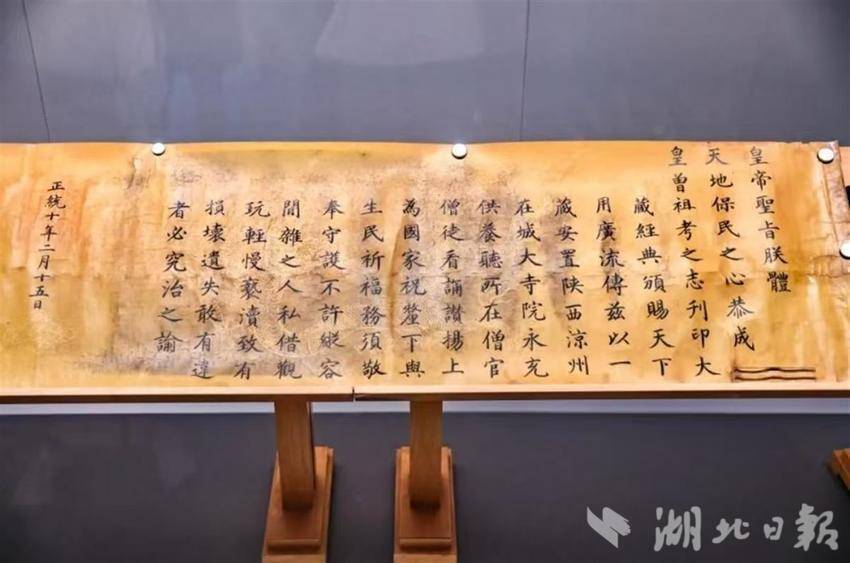 皇帝聖旨朕體
天地保民之心恭成
皇曾祖考之志刊印大
藏經典頒賜天下
用廣流傳茲以一
藏安置陝西涼州
在城大寺院永充
供養聽所在僧官
僧徒看誦讃揚上
為國家祝釐下與
生民祈福務須敬
奉守護不許縱容
閒雜之人私借觀
玩輕慢褻瀆致有
損壞遺失敢有違
者必究治之諭
正統十年二月十五日
湖北日報